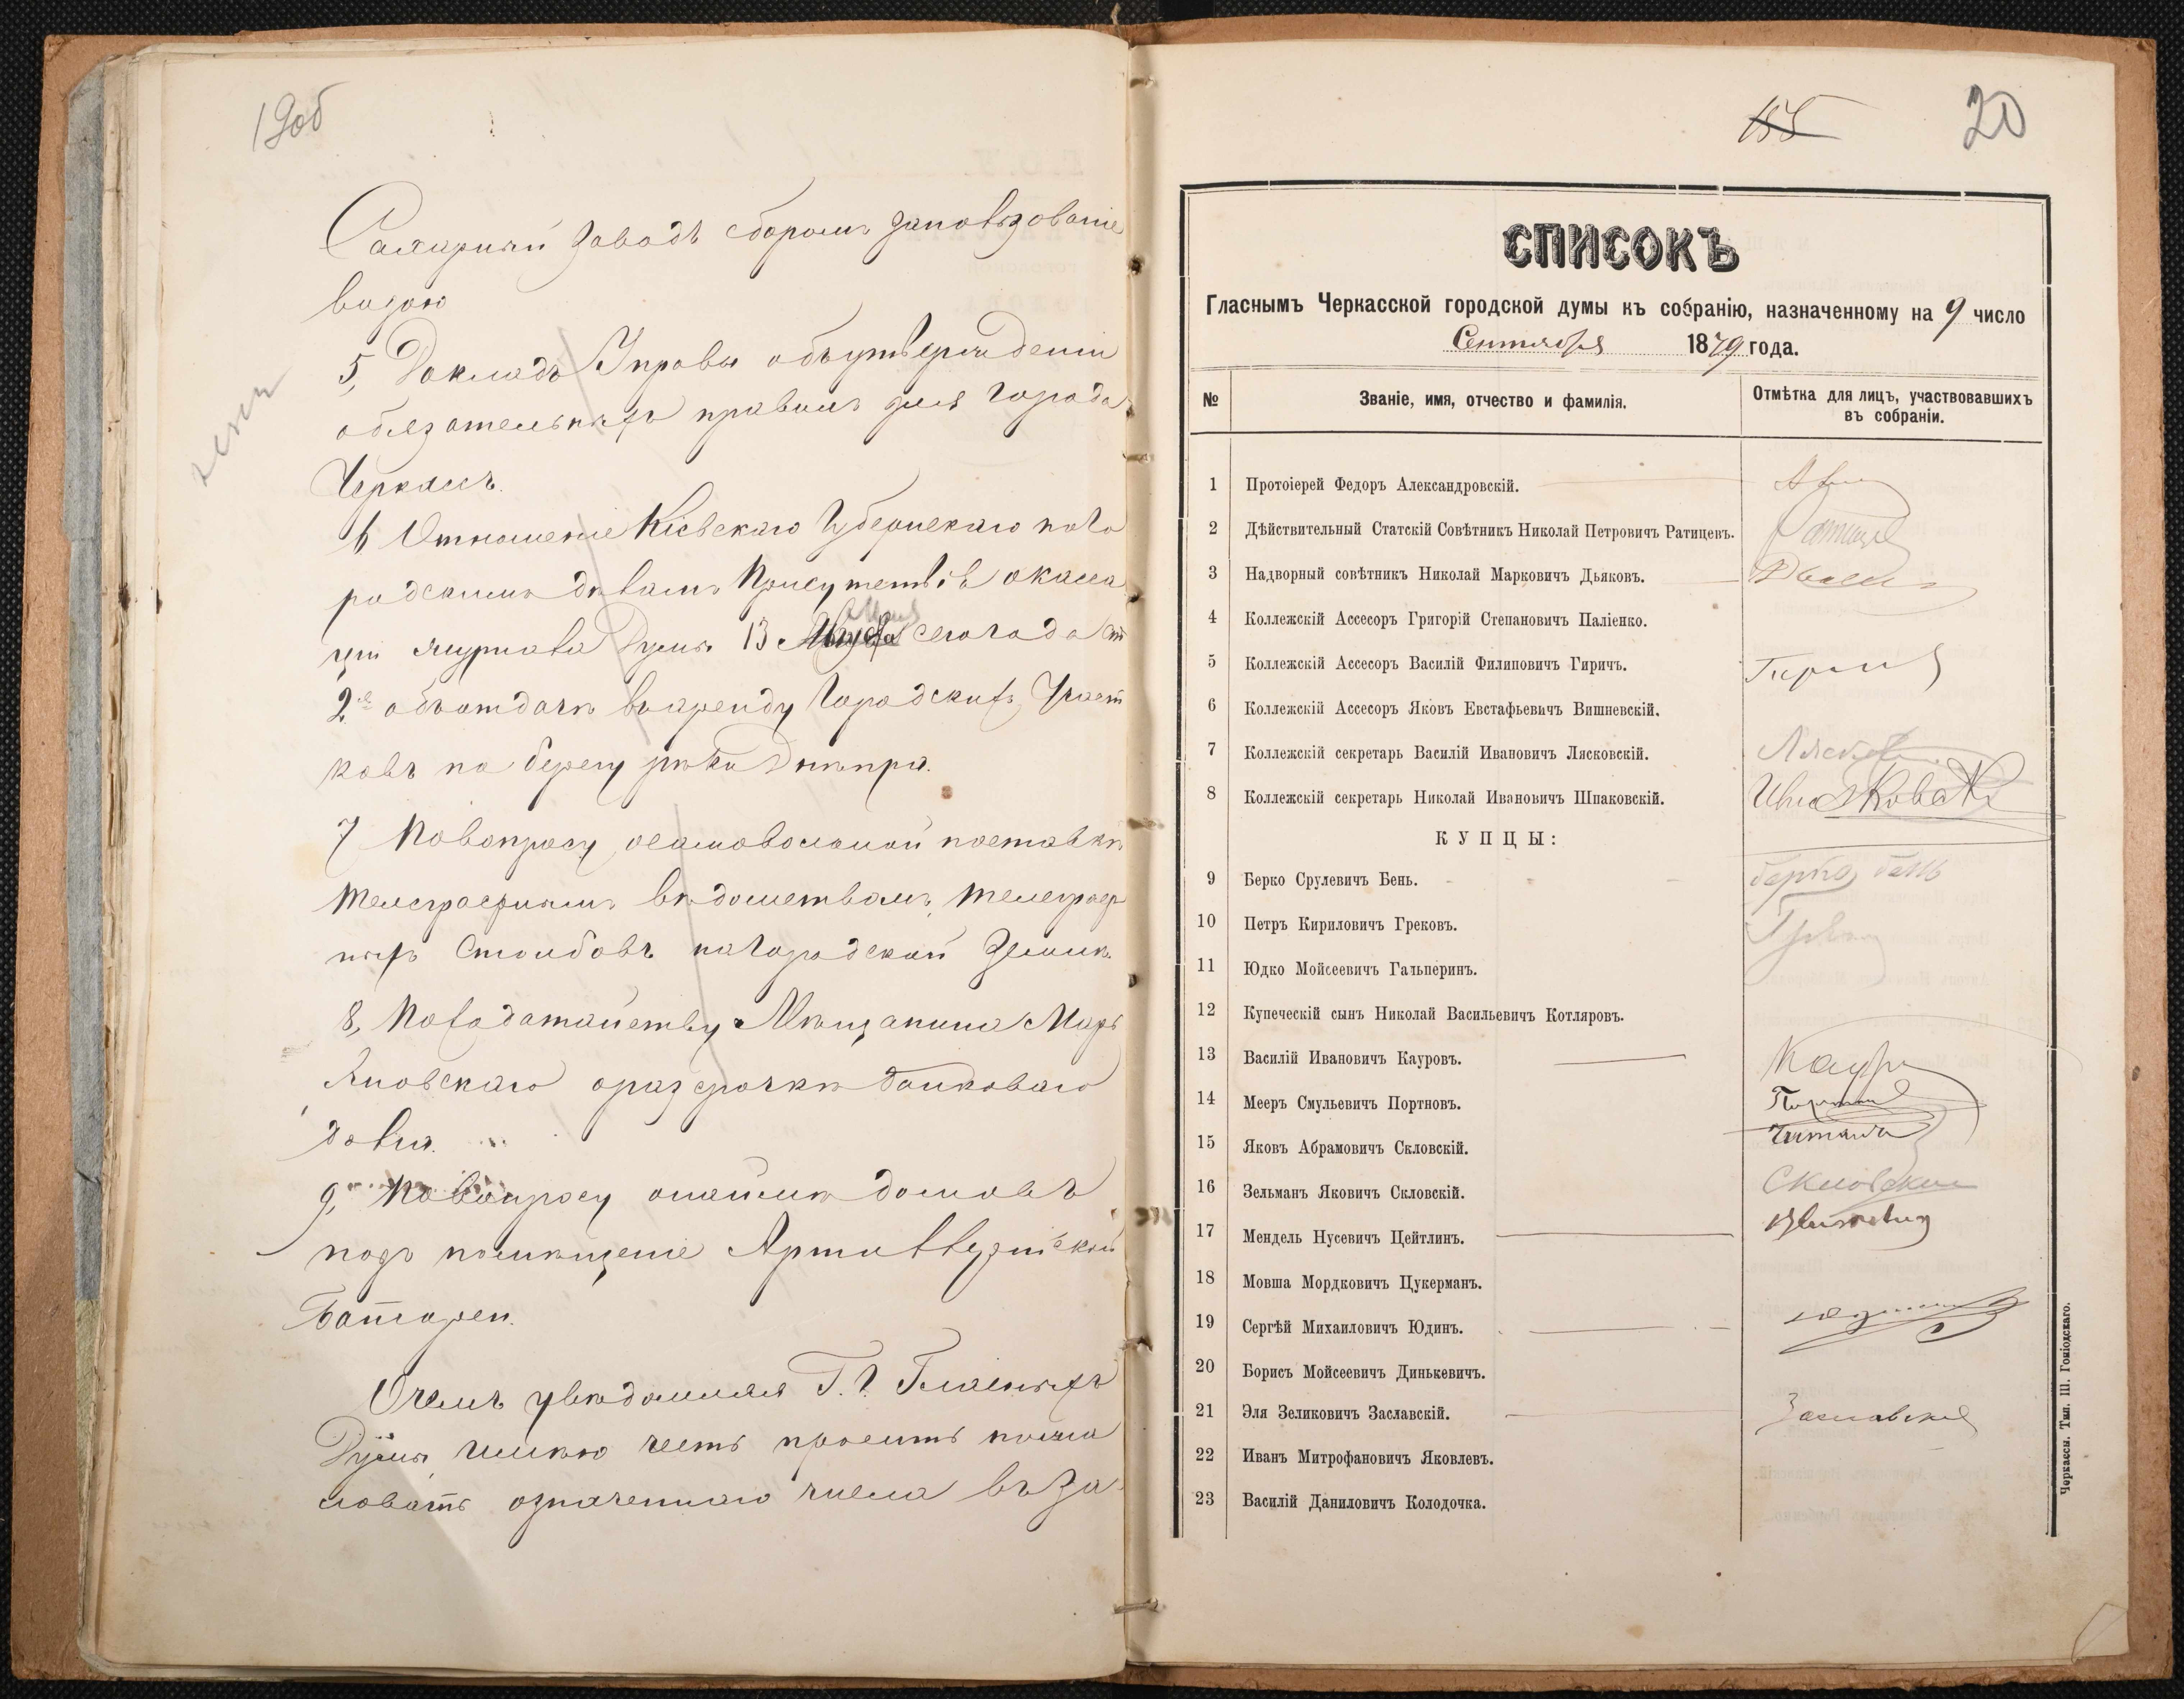 19об
Сахарный заводъ сборомъ за пользованіе
водою
5, Докладъ Управы объ утвержденіи
обязательныхъ правилъ для города
Черкассъ.
6 Отношеніе Кіевскаго Губернскаго по го
родскимъ дѣламъ Присутствія о касса
ціи журнала Думы 13 сего года ст
2й объ отдачѣ въ аренду Городскихъ Участ
ковъ на берегу рѣки Днѣпра.
7 По вопросу о самовольной поставкѣ
телеграфнымъ вѣдомствомъ телеграф
ныхъ столбовъ на городской землѣ.
8, По ходатайству Мѣщанина Марь
яновскаго о разсрочкѣ банковаго
долга.
9, По вопросу о наймѣ домовъ
подъ помѣщеніе Артиллерійской
Баттареи.
О чемъ увѣдомляя Г.г. Гласныхъ
Думы имѣю честь просить пожа
ловать означеннаго числа въ за
155
20
СПИСОКЪ
Гласнымъ Черкасской городской думы къ собранію, назначенному на 9 число
Сентября 1879 года.
№ Званіе, имя, отчество и фамилія. Отмѣтка для лицъ, участвовавшихъ
въ собраніи.
1 Протоіерей Федоръ Александровскій.
2 Дѣйствительный Статскій Совѣтникъ Николай Петровичъ Ратицевъ. Ратицев
3 Надворный совѣтникъ Николай Марковичъ Дьяковъ.
4 Коллежскій Ассесоръ Григорій Степановичъ Паліенко.
5 Коллежскій Ассесоръ Василій Филиповичъ Гиричъ. Гирич
6 Коллежскій Ассесоръ Яковъ Евстафьевичъ Вишневскій.
7 Коллежскій секретарь Василій Ивановичъ Лясковскій.
8 Коллежскій секретарь Николай Ивановичъ Шпаковскій.
КУПЦЫ:
9 Берко Срулевичъ Бень. Берко Бень
10 Петръ Кириловичъ Грековъ.
11 Юдко Мойсеевичъ Гальперинъ.
12 Купеческій сынъ Николай Васильевичъ Котляровъ.
13 Василій Ивановичъ Кауровъ.
14 Мееръ Смульевичъ Портновъ.
15 Яковъ Абрамовичъ Скловскій.
16 Зельманъ Яковичъ Скловскій. Скловский
17 Мендель Нусевичъ Цейтлинъ.
18 Мовша Мордковичъ Цукерманъ.
19 Сергѣй Михаиловичъ Юдинъ.
20 Борисъ Мойсеевичъ Динькевичъ.
21 Эля Зеликовичъ Заславскій. Заславский
22 Иванъ Митрофановичъ Яковлевъ.
23 Василій Даниловичъ Колодочка.
Черкассы. Тип. Ш. Гоніодскаго.